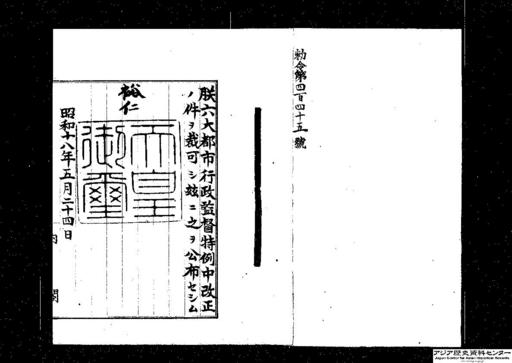 勅令第四百四十五號
朕六大都市行政監督特例中改正
ノ件ヲ裁可シ玆ニ之ヲ公布セシム
裕仁
天皇
御璽
昭和十八年五月二十四日
内閣
アジア歴史資料センター
Japan Center for Asian Historical Records